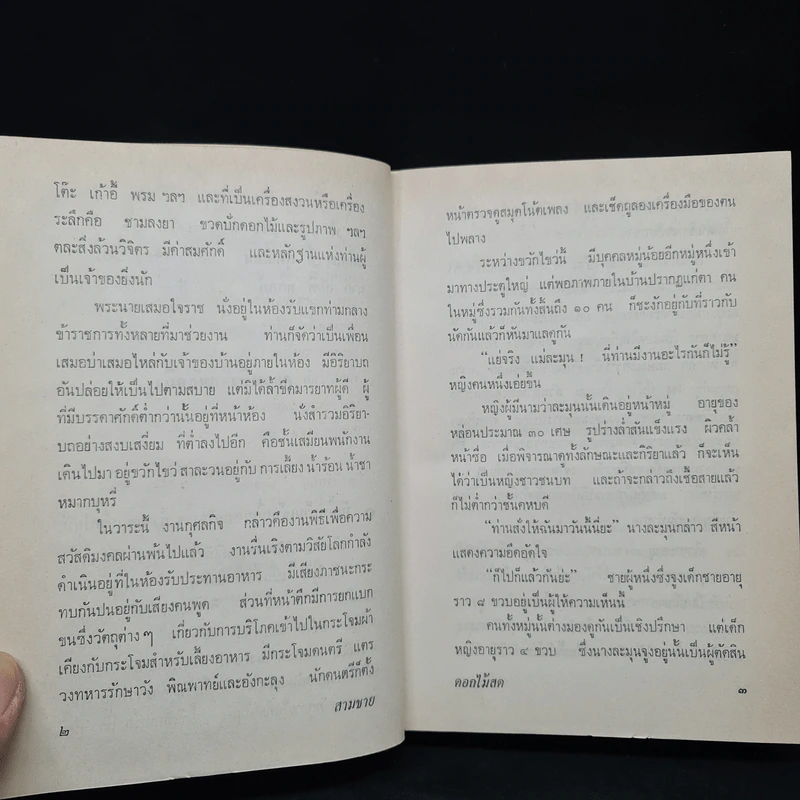 โต๊ะ เก้าอี้ พรม ฯลฯ และที่เป็นเครื่องสงวนหรือเครื่อง
ระลึกคือ ชามลงยา ขวดปักดอกไม้และรูปภาพ ฯลฯ
ตละสิ่งล้วนวิจิตร มีค่าสมศักดิ์ และหลักฐานแห่งท่านผู้
เป็นเจ้าของยิ่งนัก
พระนายเสมอใจราช นั่งอยู่ในห้องรับแขกท่ามกลาง
ข้าราชการทั้งหลายที่มาช่วยงาน ท่านก็จัดว่าเป็นเพื่อน
เสมอบ่าเสมอไหล่กับเจ้าของบ้านอยู่ภายในห้อง มีอิริยาบถ
อันปล่อยให้เป็นไปตามสบาย แต่มิได้ล้ำขีดมารยาทผู้ดี ผู้
ที่มีบรรดาศักดิ์ต่ำกว่านั้นอยู่ที่หน้าห้อง นั่งสำรวมอิริยา-
บถอย่างสงบเสงี่ยม ที่ต่ำลงไปอีก คือชั้นเสมียนพนักงาน
เดินไปมา อยู่ขวักไขว่ สาละวนอยู่กับ การเลี้ยง น้ำร้อน น้ำชา
หมากบุหรี่
ในวาระนี้ งานกุศลกิจ กล่าวคืองานพิธีเพื่อความ
สวัสดิมงคลผ่านพ้นไปแล้ว งานรื่นเริงตามวิสัยโลกกำลัง
ดำเนินอยู่ที่ในห้องรับประทานอาหาร มีเสียงภาชนะกระ
ทบกันปนอยู่กับเสียงคนพูด ส่วนที่หน้าตึกมีการยกแบก
ขนซึ่งวัตถุต่างๆ เกี่ยวกับการบริโภคเข้าไปในกระโจมผ้า
เคียงกับกระโจมสำหรับเลี้ยงอาหาร มีกระโจมดนตรี แตร
วงทหารรักษาวัง พิณพาทย์และอังกะลุง นักดนตรีก็ตั้ง
สามชาย
๒
หน้าตรวจดูสมุดโน้ตเพลง และเช็ดถูลองเครื่องมือของตน
ไปพลาง
ระหว่างขวักไขว่นี้ มีบุคคลหมู่น้อยอีกหมู่หนึ่งเข้า
มาทางประตูใหญ่ แต่พอภาพภายในบ้านปรากฏแก่ตา คน
ในหมู่ซึ่งรวมกันทั้งสิ้นถึง ๑๐ คน ก็ชะงักอยู่กับที่ราวกับ
นัดกันแล้วก็หันมาแลดูกัน
“แย่จริง แม่ละมุน ! นี่ท่านมีงานอะไรกันก็ไม่รู้”
หญิงคนหนึ่งเอ่ยขึ้น
หญิงผู้มีนามว่าละมุนนั้นเดินอยู่หน้าหมู่ อายุของ
หล่อนประมาณ ๓๐ เศษ รูปร่างล่ำสันแข็งแรง ผิวคล้ำ
หน้าซื่อ เมื่อพิจารณาดูทั้งลักษณะและกิริยาแล้ว ก็จะเห็น
ได้ว่าเป็นหญิงชาวชนบท และถ้าจะกล่าวถึงเชื้อสายแล้ว
ก็ไม่ต่ำกว่าชั้นคหบดี
“ท่านสั่งให้ฉันมาวันนี้นี่ยะ” นางละมุนกล่าว สีหน้า
แสดงความอึดอัดใจ
“ก็ไปก็แล้วกันย่ะ” ชายผู้หนึ่งซึ่งจูงเด็กชายอายุ
ราว ๘ ขวบอยู่เป็นผู้ให้ความเห็นนี้
คนทั้งหมู่นั้นต่างมองดูกันเป็นเชิงปรึกษา แต่เด็ก
หญิงอายุราว ๔ ขวบ ซึ่งนางละมุนจูงอยู่นั้นเป็นผู้ตัดสิน
ดอกไม้สด
๓